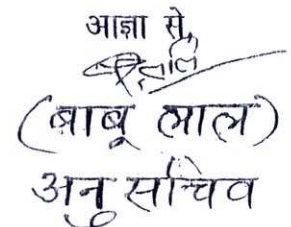 आज्ञा से,
(बाबू लाल)
अनु सचिव